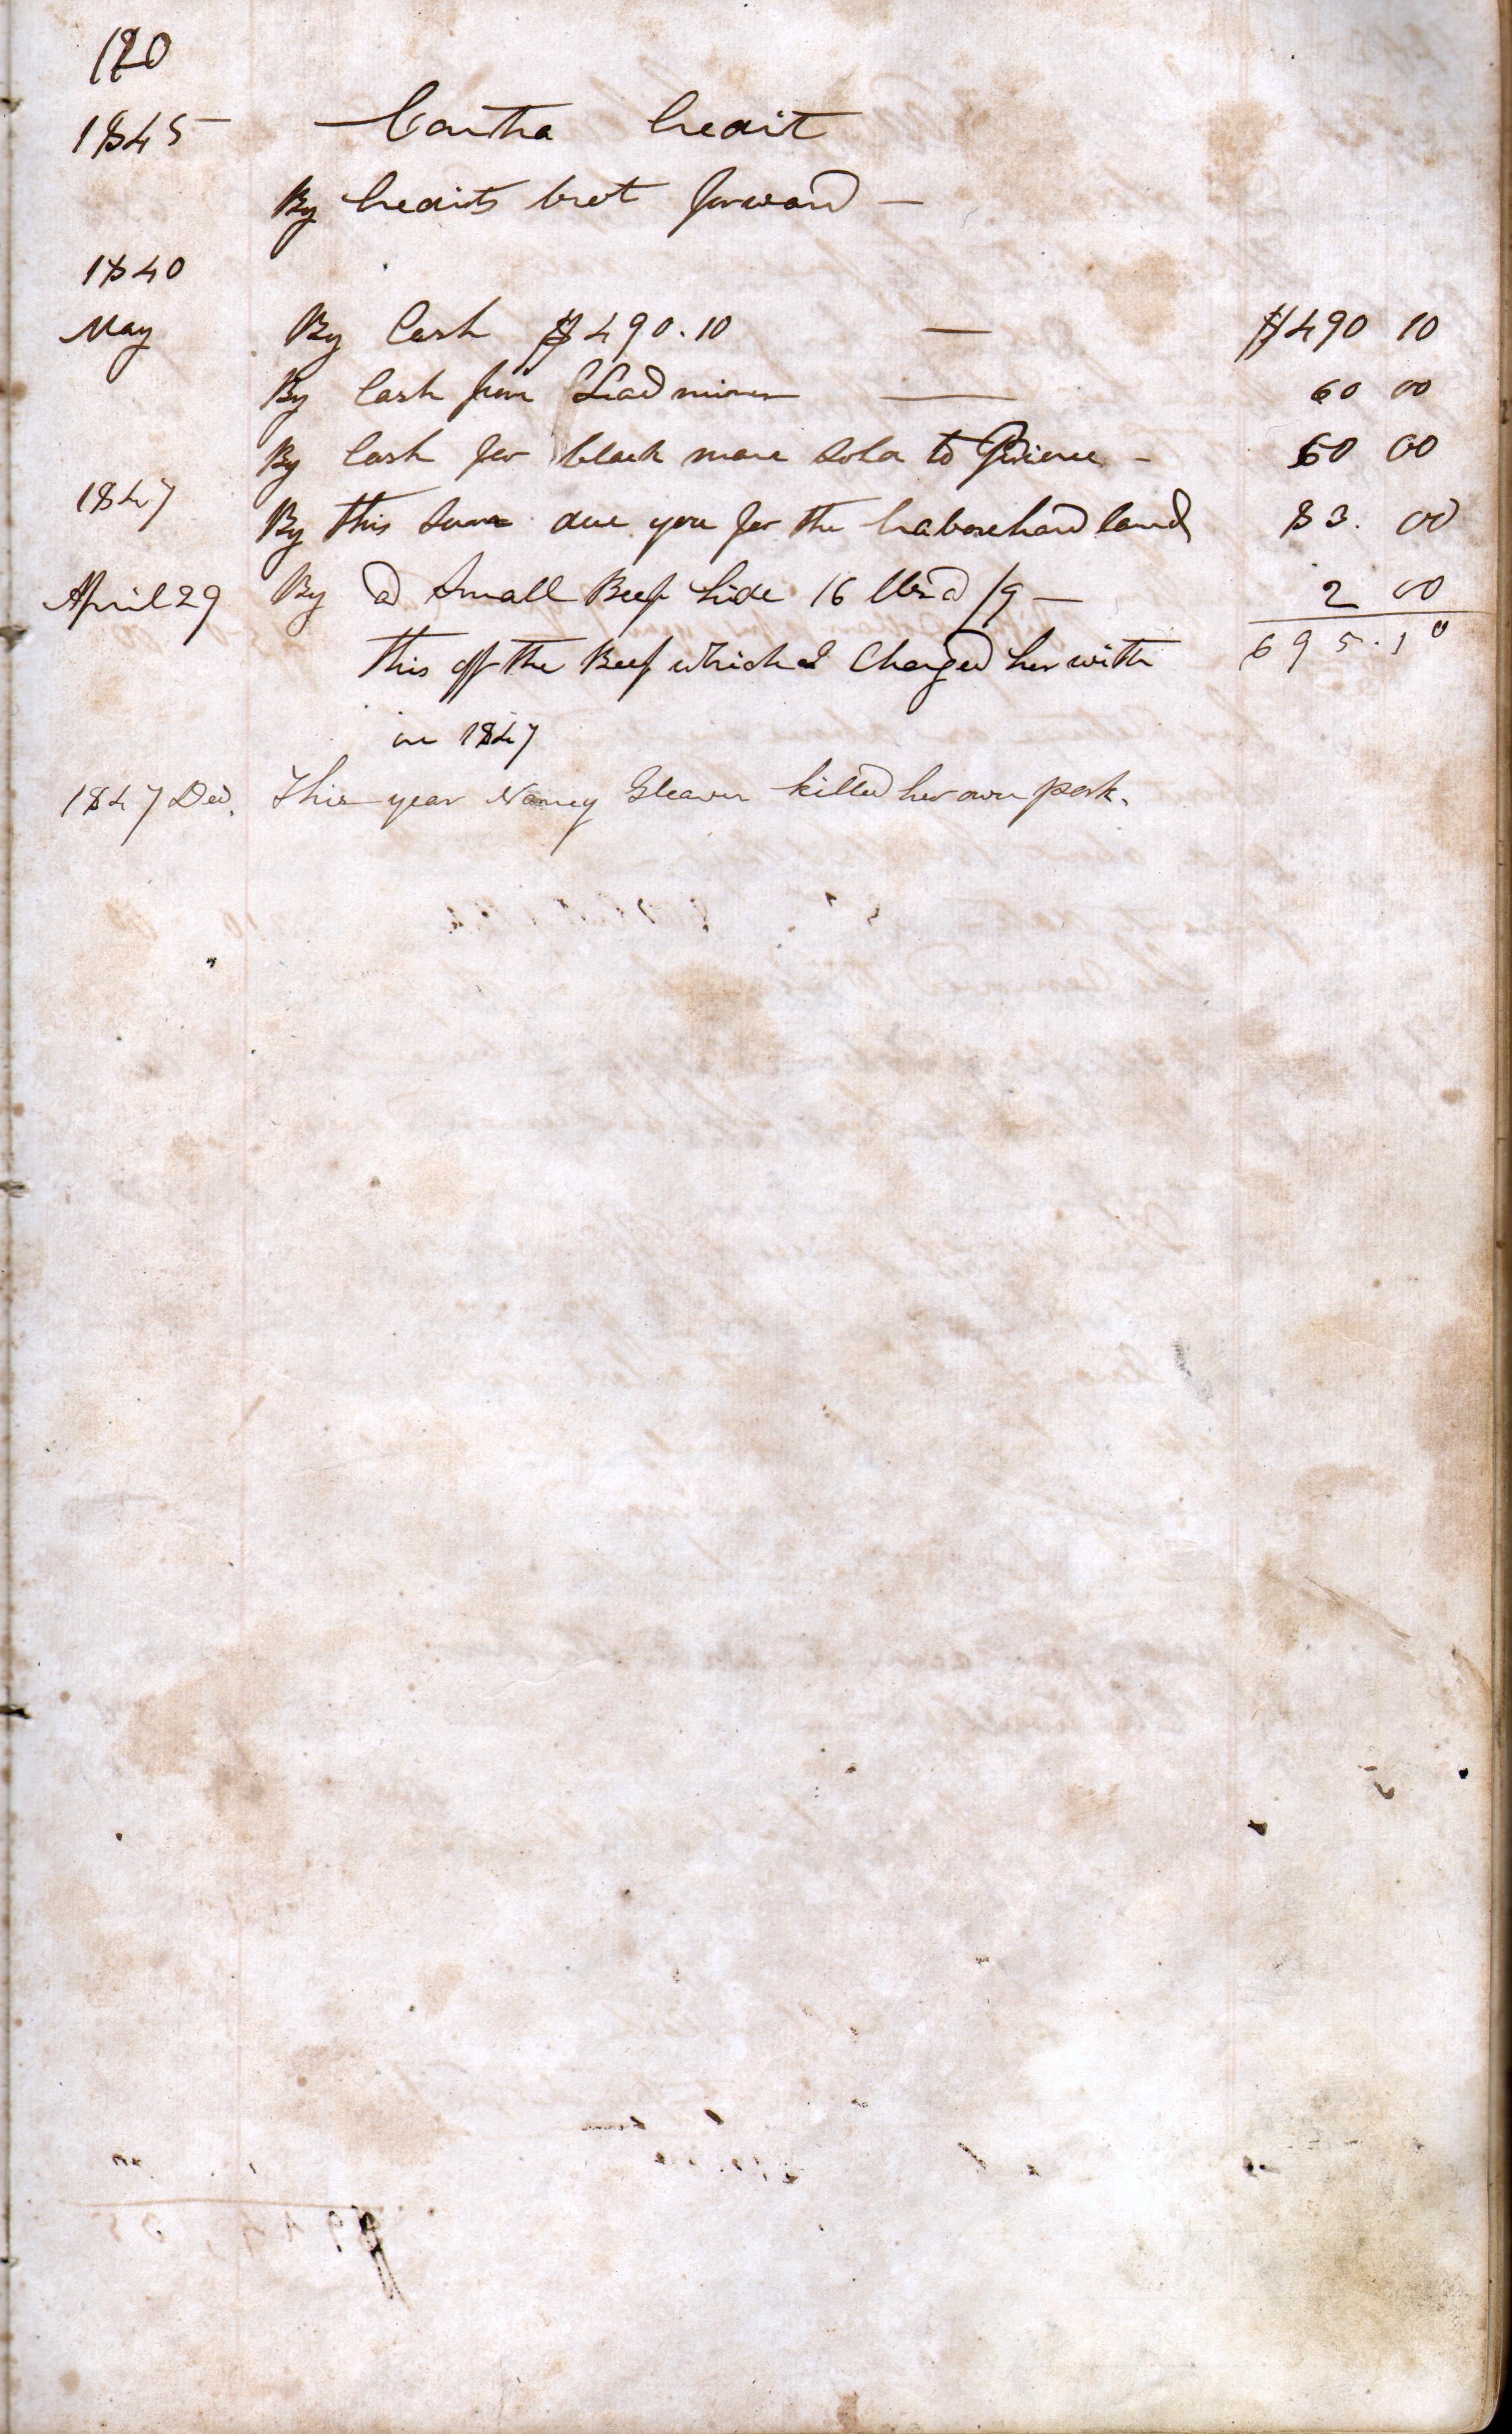 120
1845 Contra Credit
By Credits brot forward —
1840
May By Cash $490.10 — $490 10
By Cash from Lead mines — 60 00
By Cash for black mare Sold to — 60 00
1847 By this Sum due you for the Craborchard land 83. 00
April 29 By a Small Beef hide 16 lbs @ /9 — 2 00
this off the Beef which I Charged her with 695.10
in 1847
1847 Dec. This year Nancy Gleaves killed her own pork.